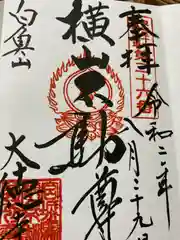 奉拝
令和二年
八月二十九日
横山不動尊
白魚山
大徳寺